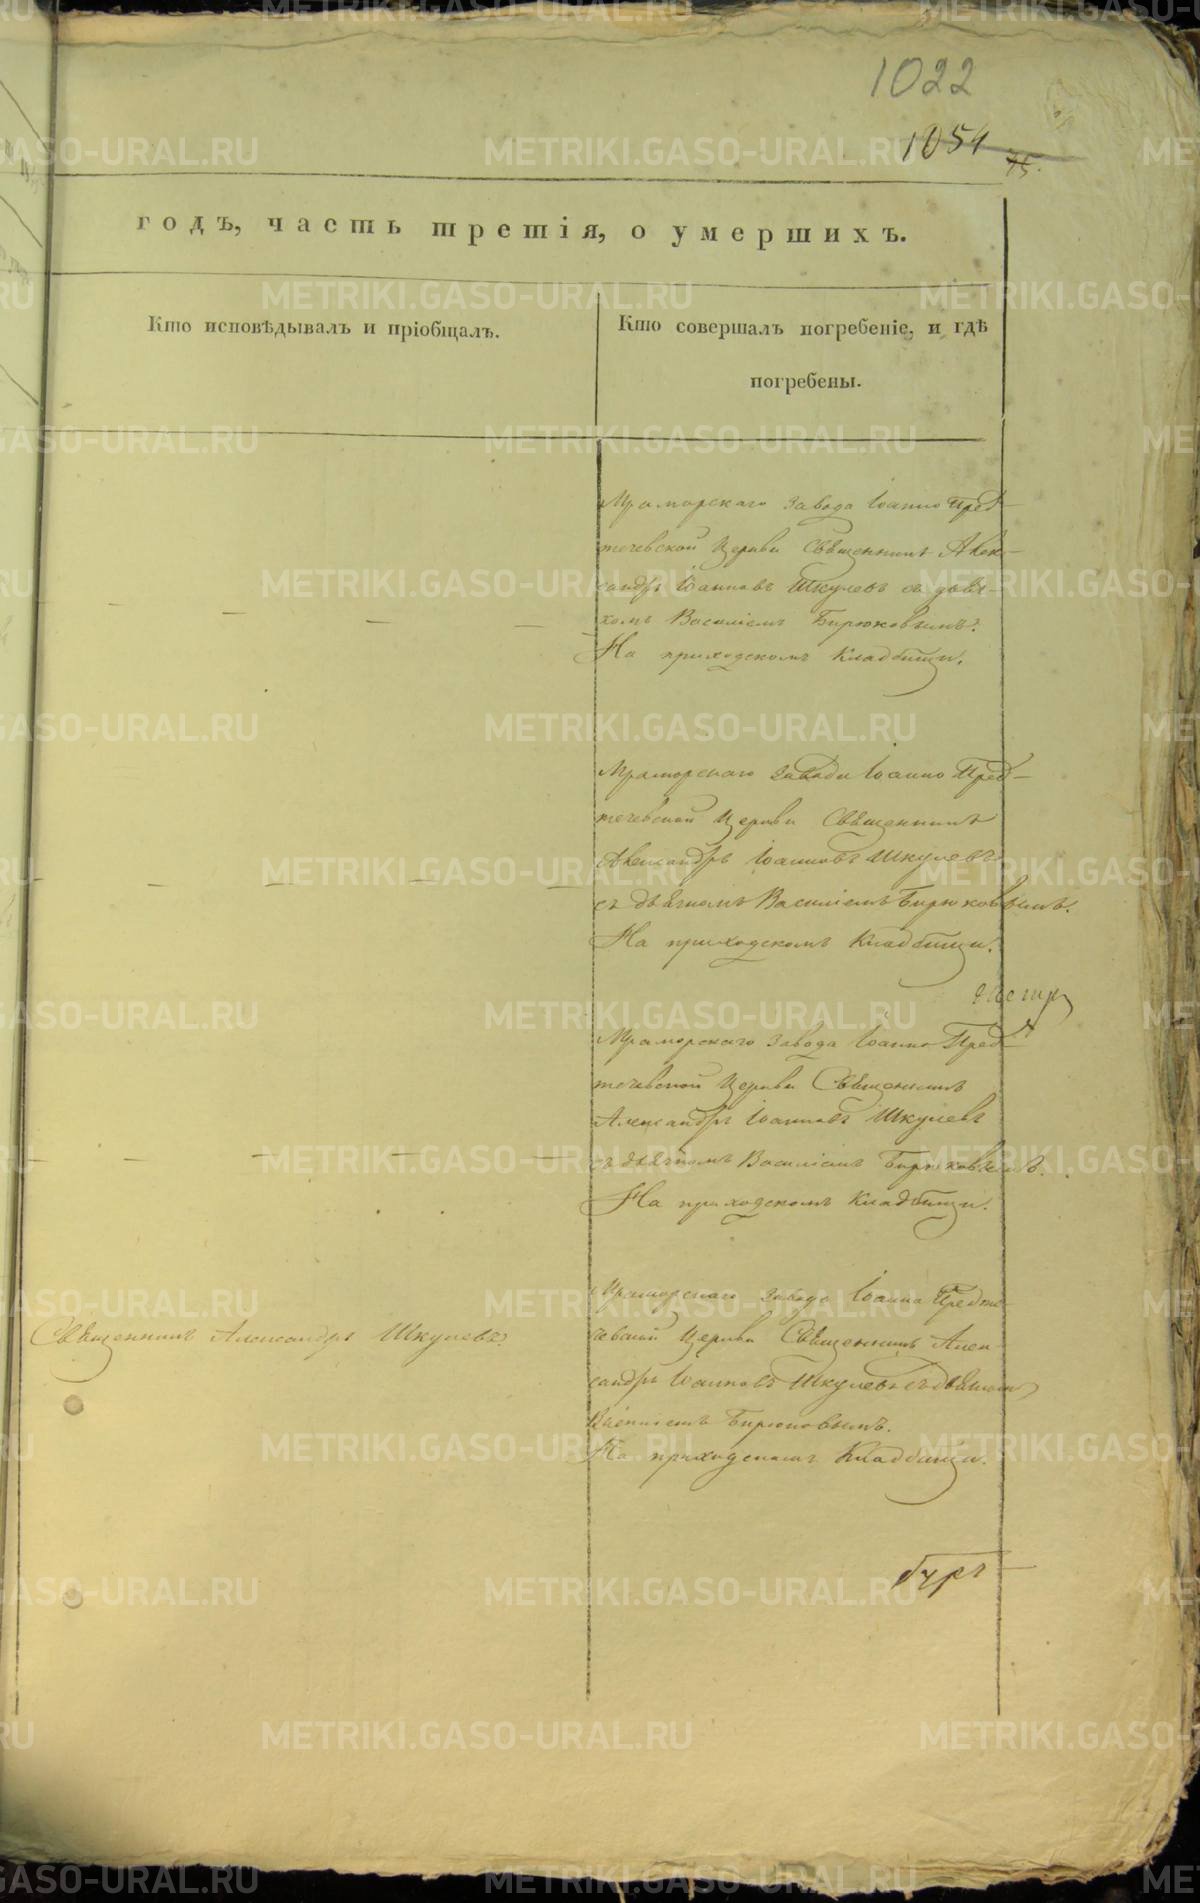 1022
1054
75.
годъ, часть третія, о умершихъ.
Кто исповѣдывалъ и пріобщалъ.
Кто совершалъ погребеніе, и гдѣ
погребены.
Мраморскаго завода Іоанно Пред-
течевской Церкви Священникъ Алек-
сандръ Іоанновъ Шкулевъ съ дьяч-
комъ Василіемъ Бирюковымъ.
На приходскомъ Кладбищи.
Мраморскаго завода Іоанно Пред-
течевской Церкви Священникъ
Александръ Іоанновъ Шкулевъ
съ дьячкомъ Василіемъ Бирюковымъ.
На приходскомъ Кладбищи.
Мраморскаго завода Іоанно Пред-
течевской Церкви Священникъ
Александръ Іоанновъ Шкулевъ
съ дьячкомъ Василіемъ Бирюковымъ.
На приходскомъ Кладбищи.
Священникъ Александръ Шкулевъ.
Мраморскаго завода Іоанно Предте-
чевской Церкви Священникъ Алек-
сандръ Іоанновъ Шкулевъ съ дьячкомъ
Василіемъ Бирюковымъ.
На приходскомъ Кладбищи.
METRIKI.GASO-URAL.RU